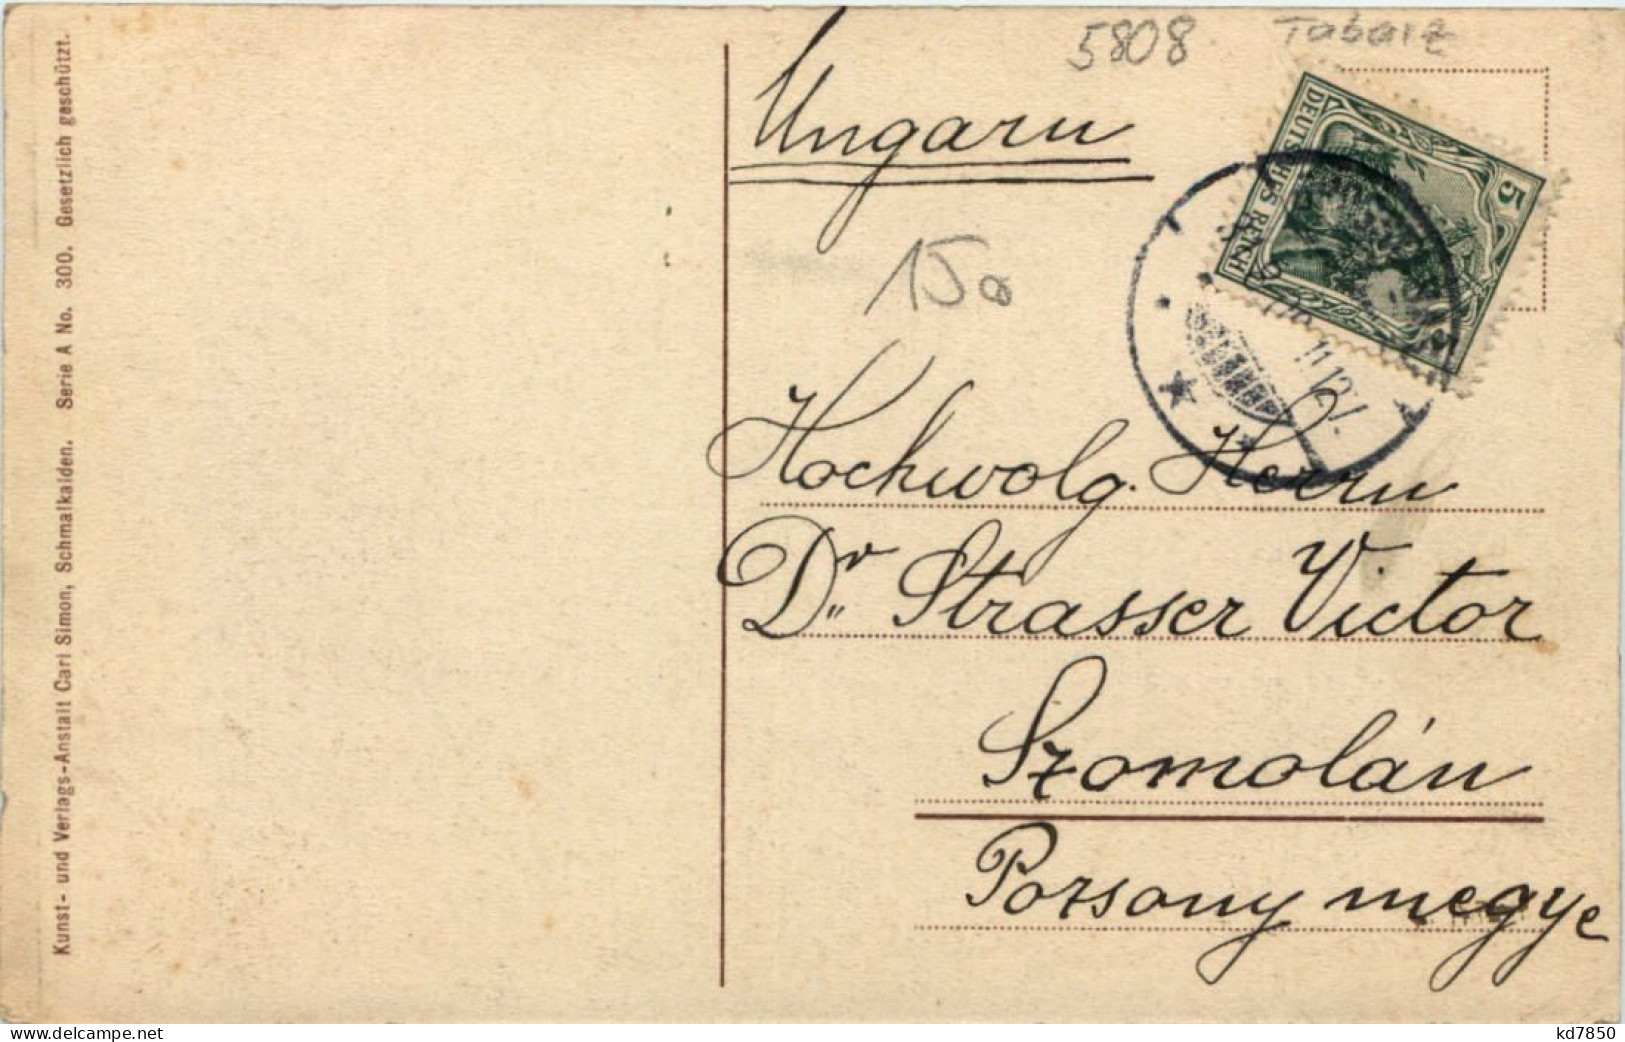 5808 Tabarz
Ungarn
DEUTSCHES REICH
5
15a
Hochwolg. Herrn
Dr. Strasser Victor
Szomolán
Pozsony megye
Kunst- und Verlags-Anstalt Carl Simon, Schmalkalden. Serie A No. 300. Gesetzlich geschützt.
www.delcampe.net
kd7850